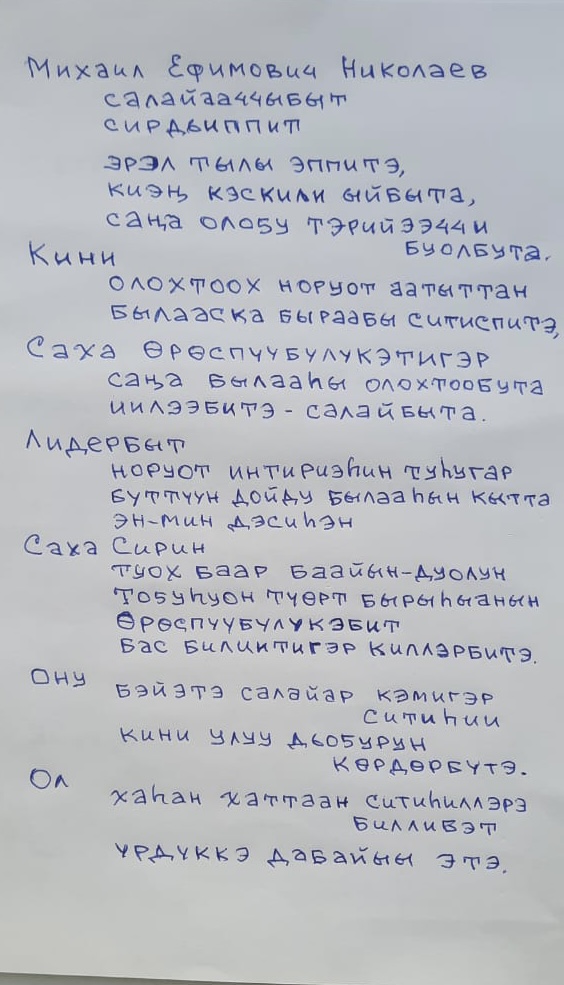 Михаил Ефимович Николаев
салайааччыбыт
сирдьиппит
эрэл тылы эппитэ,
киэҥ кэскили ыйбыта,
саҥа олоҕу тэрийээччи
буолбута.
Кини
олохтоох норуот аатыттан
былааска быраабы ситиспитэ,
Саха өрөспүүбүлүкэтигэр
саҥа былааһы олохтообута
иилээбитэ - салайбыта.
Лидербыт
норуот интириэһин туһугар
бүттүүн дойду былааһын кытта
эн-мин дэсиһэн
Саха Сирин
туох баар баайын-дуолун
тоҕуһуон түөрт бырыһыанын
өрөспүүбүлүкэбит
бас билиитигэр киллэрбитэ.
Ону
бэйэтэ салайар кэмигэр
ситиһии
кини улуу дьоҕурун
көрдөрбүтэ.
Ол
хаһан хаттаан ситиһиллэрэ
биллибэт
үрдүккэ дабайыы этэ.